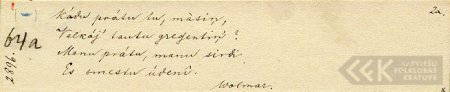 Kādu prātu tu, māsiņ,
2a.
64a
Velkāj' tautu gregentiņ?
Manu prātu, manu sirdi
Es smestu ūdenī.
Wolmar.
9682
LATVIEŠU
FOLKLORAS
KRĀTUVE